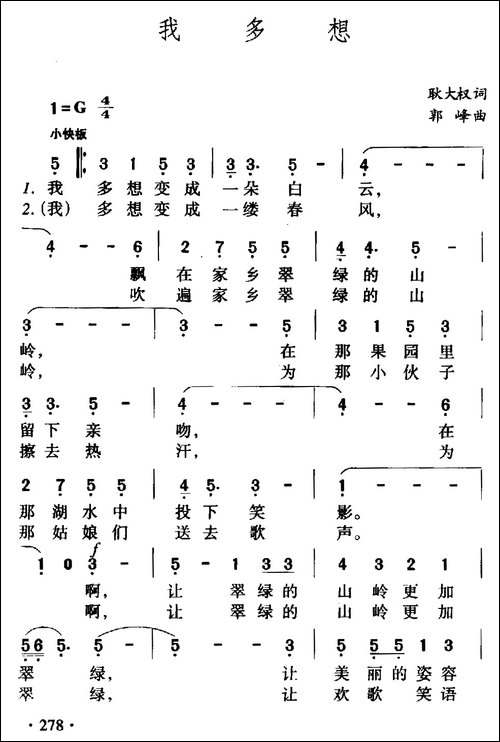 我 多 想
耿大权词
郭 峰曲
1=G 4/4
小快板
5 3 1 5 3 3 3· 5 - 4 - - -
1. 我 多 想 变 成 一 朵 白 云,
2. (我) 多 想 变 成 一 缕 春 风,
4 - - 6 2 7 5 5 4 4· 5 4 3 - - -
飘 在 家 乡 翠 绿 的 山
吹 遍 家 乡 翠 绿 的 山
3 - - - 3 - - 5 3 1 5 3
岭, 在 那 果 园 里
岭, 为 那 小 伙 子
3 3· 5 - 4 - - - 4 - - 6
留 下 亲 吻, 在
擦 去 热 汗, 为
2 7 5 5 4 5· 3 - 1 - - -
那 湖 水 中 投 下 笑 影。
那 姑 娘 们 送 去 歌 声。
f
1 0 3 - - 5 - 1 3 3 4 3 2 1
啊, 让 翠 绿 的 山 岭 更 加
啊, 让 翠 绿 的 山 岭 更 加
5 6 5· 5 - 5 - - 3 6 5 5 1 3
翠 绿, 让 美 丽 的 姿 容
翠 绿, 让 欢 歌 笑 语
· 278 ·